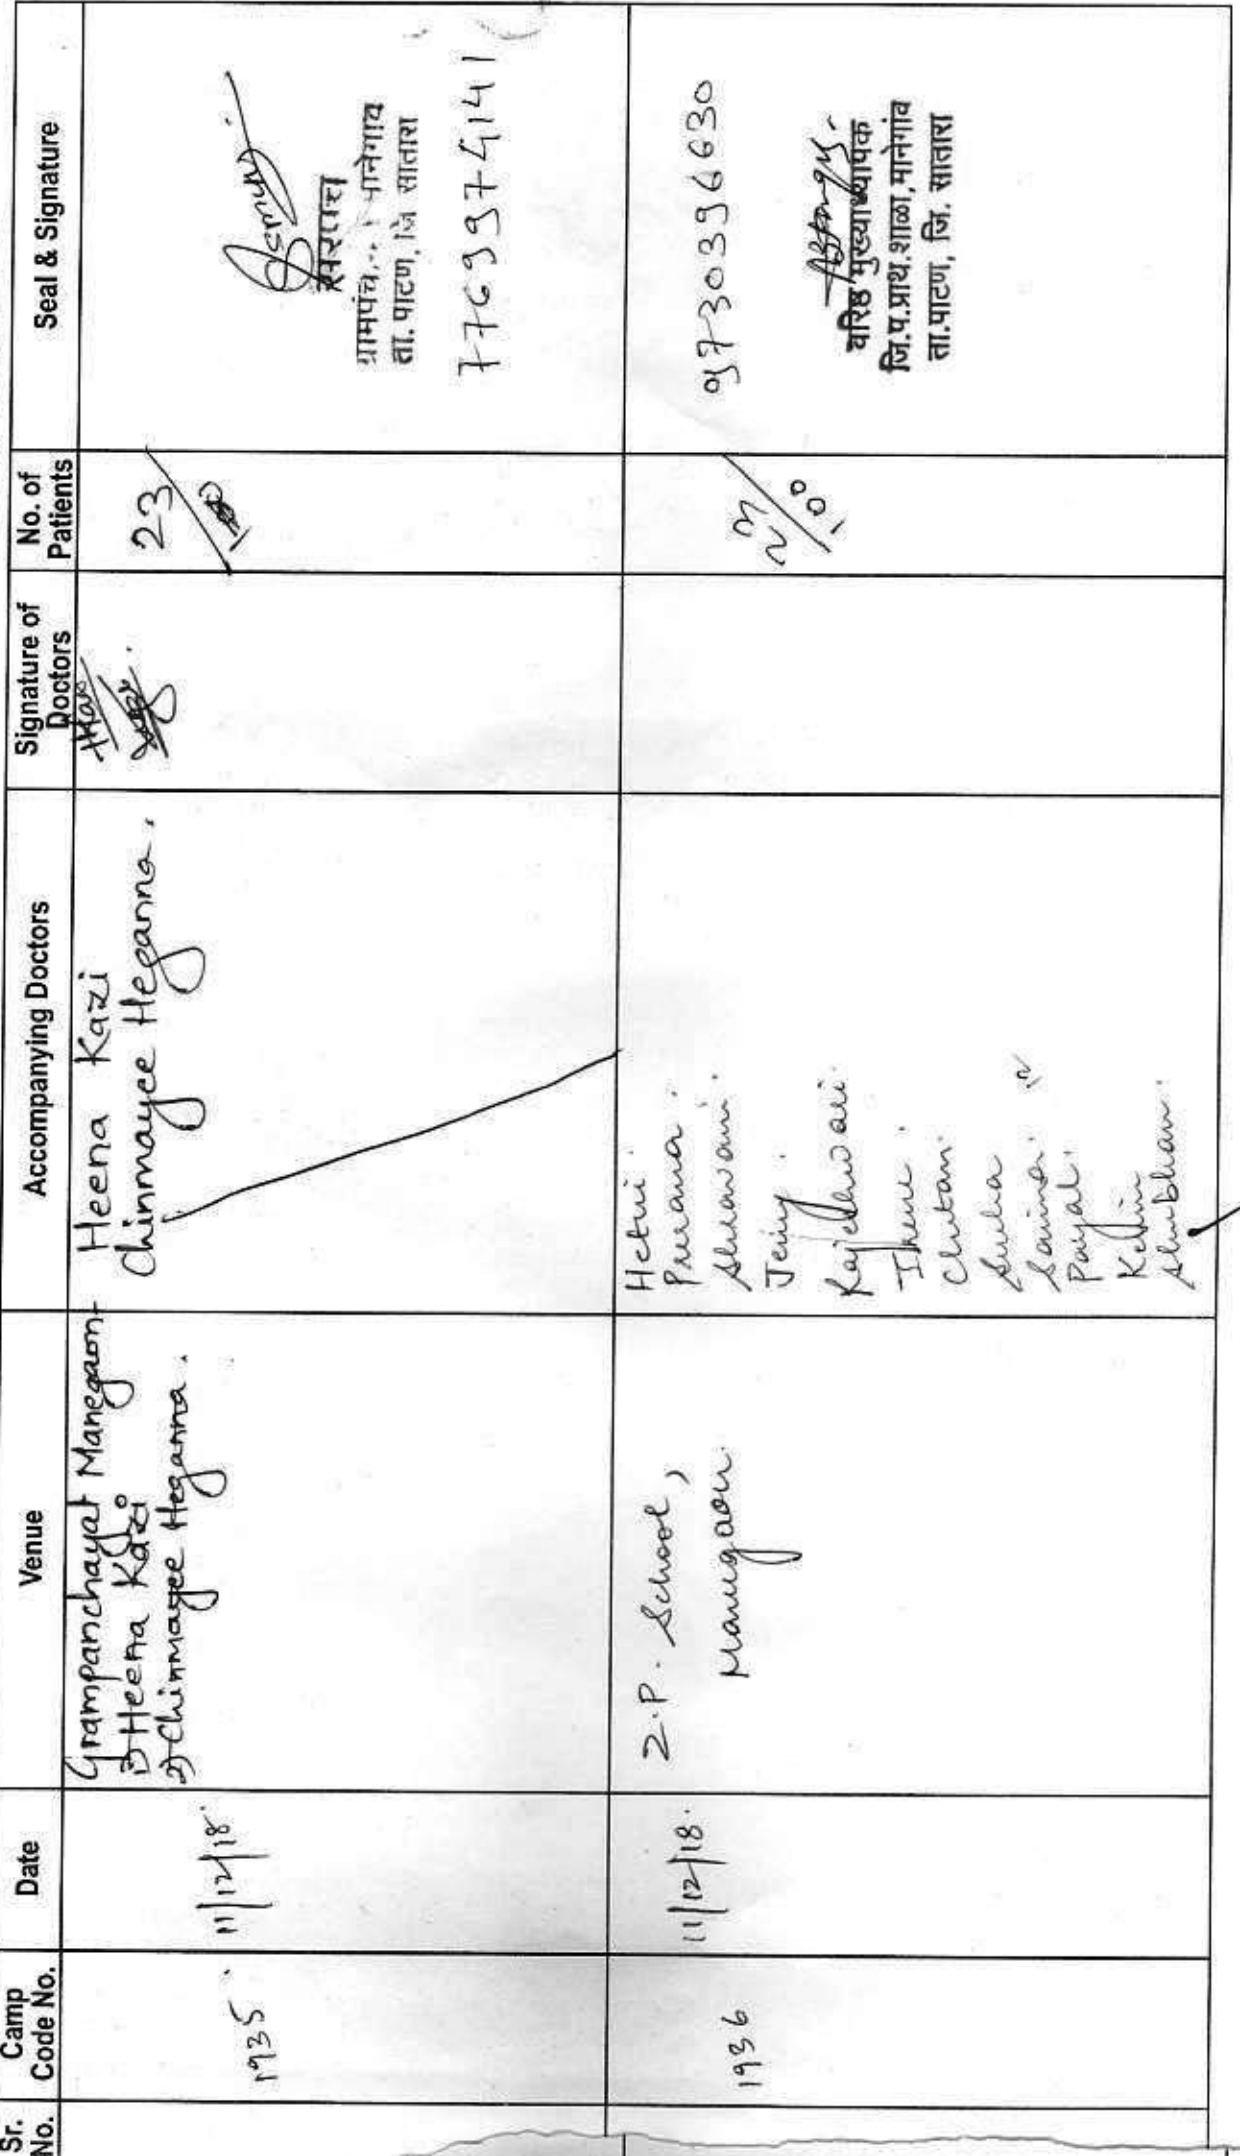 Sr. No.
Camp Code No.
Date
Venue
Accompanying Doctors
Signature of Doctors
No. of Patients
Seal & Signature
1935
11/12/18.
Grampanchayat Manegaon
1) Heena Kazi
2) Chinmayee Heganna.
Heena Kazi
Chinmayee Heganna.
23
100
सरपंच
ग्रामपंचा... मानेगाव
ता. पाटण, जि सातारा
1936
11/12/18.
Z.P. School,
Manegaon.
Hetvi
Prerana.
Shravani.
Jeiny
Rajeshwari.
Chetan.
Sneha
Saima.
Payal.
Ketan
Shubham.
23
100
9730396630
वरिष्ठ मुख्याध्यापक
जि.प.प्राथ.शाळा, मानेगांव
ता.पाटण, जि. सातारा